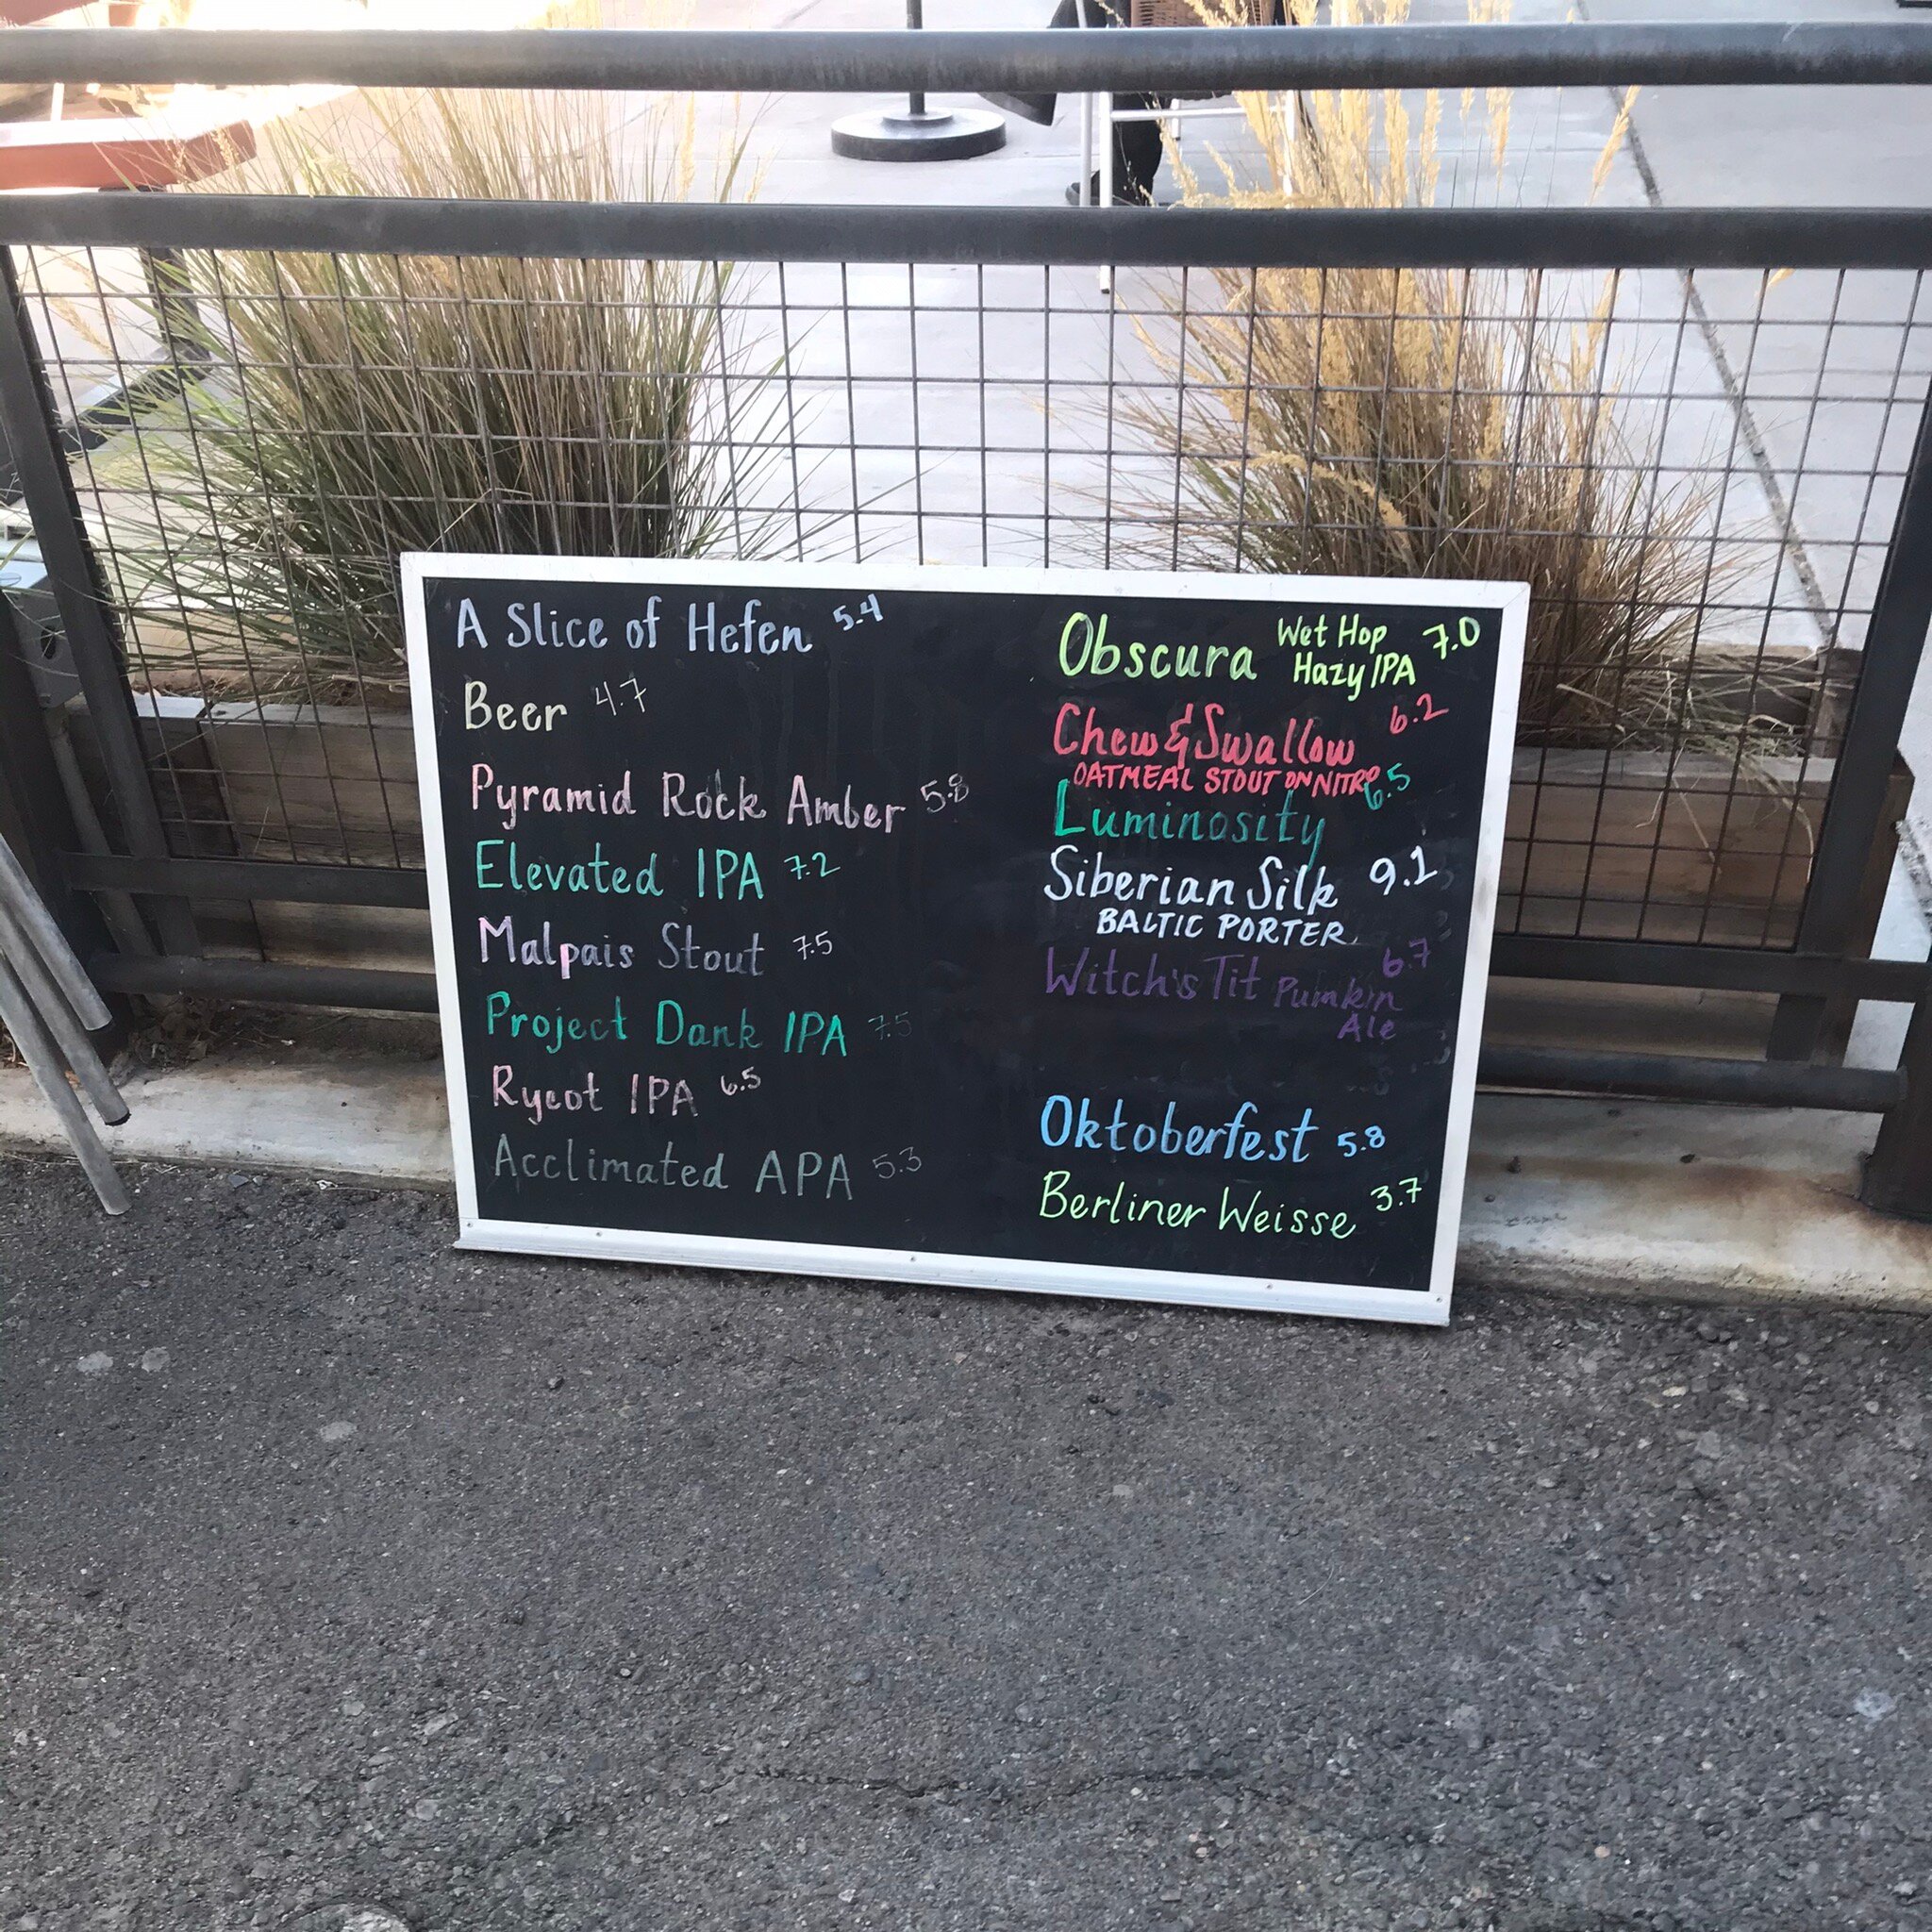 A Slice of Hefen 5.4
Beer 4.7
Pyramid Rock Amber 5.8
Elevated IPA 7.2
Malpais Stout 7.5
Project Dank IPA 7.5
Ryeot IPA 6.5
Acclimated APA 5.3
Obscura Wet Hop 7.0
Hazy IPA
Chew & Swallow 6.2
OATMEAL STOUT ON NITRO
Luminosity 6.5
Siberian Silk 9.1
BALTIC PORTER
Witch's Tit Pumkin 6.7
Ale
Oktoberfest 5.8
Berliner Weisse 3.7